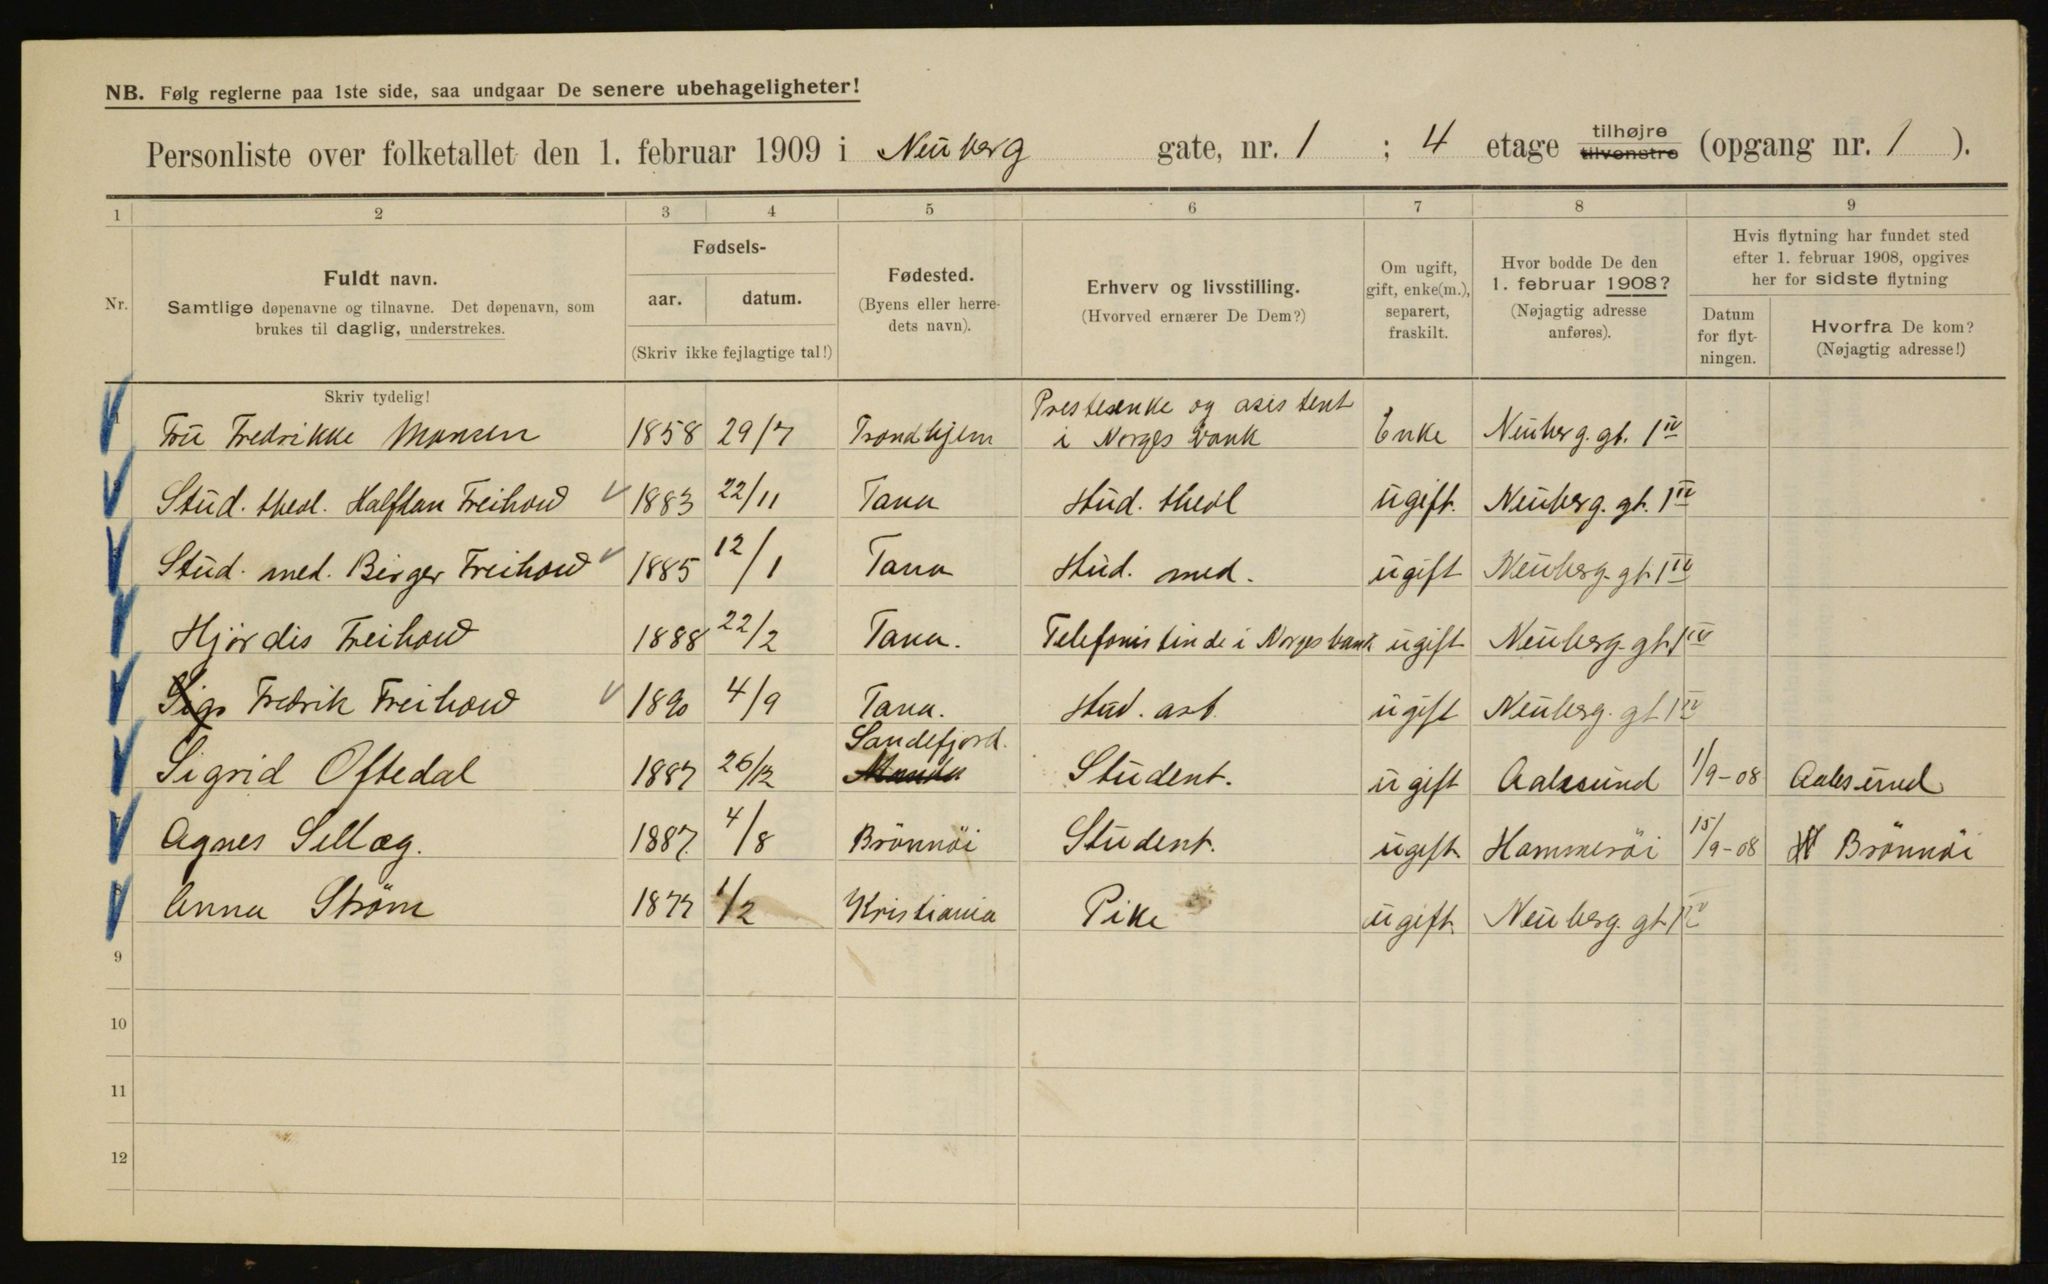 NB. Følg reglerne paa 1ste side, saa undgaar De senere ubehageligheter!
Personliste over folketallet den 1. februar 1909 i Neuberg gate, nr. 1 ; 4 etage tilhøjre tilvenstre (opgang nr. 1 ).
1 2 3 4 5 6 7 8 9
Nr.
Fuldt navn.
Samtlige døpenavne og tilnavne. Det døpenavn, som
brukes til daglig, understrekes.
Fødsels-
aar. datum.
(Skriv ikke fejlagtige tal!)
Fødested.
(Byens eller herre-
dets navn).
Erhverv og livsstilling.
(Hvorved ernærer De Dem?)
Om ugift,
gift, enke(m.),
separert,
fraskilt.
Hvor bodde De den
1. februar 1908?
(Nøjagtig adresse
anføres).
Hvis flytning har fundet sted
efter 1. februar 1908, opgives
her for sidste flytning
Datum
for flyt-
ningen.
Hvorfra De kom?
(Nøjagtig adresse!)
Skriv tydelig!
Fru Fredrikke Monsen 1858 29/7 Trondhjem Presteenke og assistent i Norges Bank Enke Neuberg. gt. 1 IV
Stud. theol. Halfdan Freihow 1883 22/11 Tana Stud. theol ugift. Neuberg. gt. 1 IV
Stud. med. Birger Freihow 1885 12/1 Tana Stud. med. ugift Neuberg. gt. 1 IV
Hjørdis Freihow 1888 22/2 Tana. Telefonistinde i Norges bank ugift Neuberg. gt. 1 IV
Sigr Fredrik Freihow 1890 4/9 Tana. Stud. art. ugift Neuberg. gt 1 IV
Sigrid Oftedal 1887 26/12 Sandefjord. Student. ugift Aalesund 1/9-08 Aalesund
Agnes Sellæg. 1887. 4/8 Brönnöi Student. ugift. Hammeröi 15/9-08 H Brönnöi
Anna Strøm 1877 1/2 Kristiania Pike ugift. Neuberg. gt. 1 IV
9
10
11
12